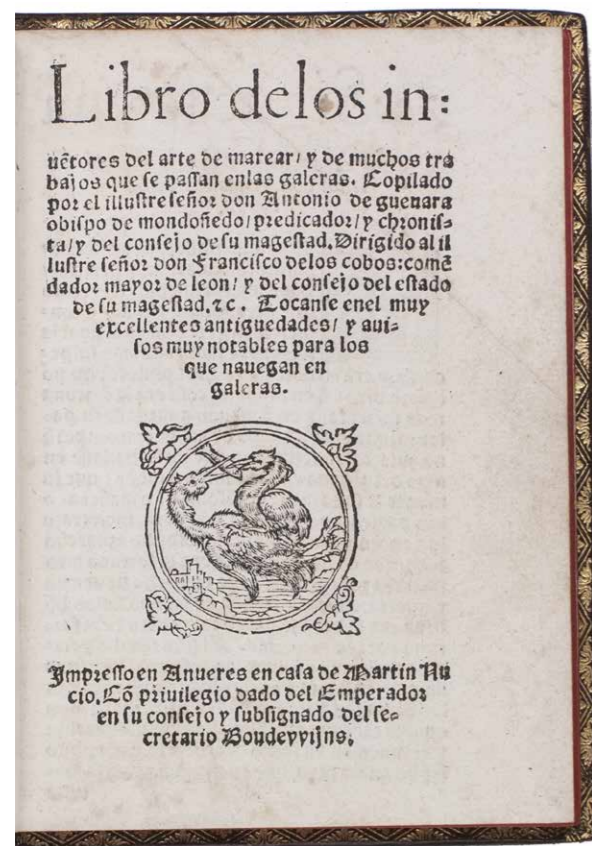 Libro delos in:
uẽtores del arte de marear/ y de muchos tra
bajos que se passan enlas galeras. Copilado
por el illustre señor don Antonio de gueuara
obispo de mondoñedo/ predicador/ y chronis-
ta/ y del consejo de su magestad. Dirigido al il
lustre señor don Francisco delos cobos: comẽ
dador mayor de leon/ y del consejo del estado
de su magestad. ⁊c. Tocanse enel muy
excellentes antiguedades/ y aui-
sos muy notables para los
que nauegan en
galeras.
Impresso en Anueres en casa de Martin Nu
cio. Cõ priuilegio dado del Emperador
en su consejo y subsignado del se-
cretario Boudevvijns.